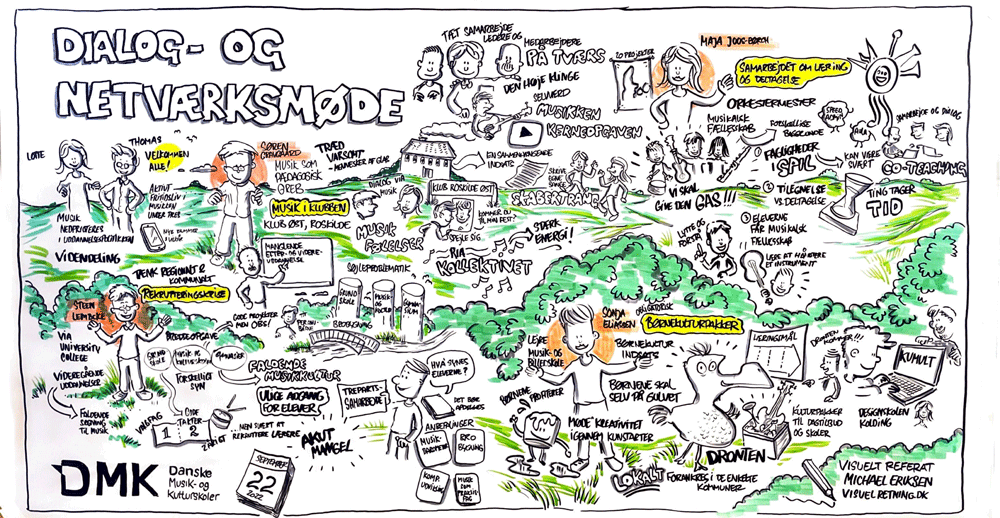 DIALOG- OG
NETVÆRKSMØDE
LOTTE
THOMAS
VELKOMMEN
ALLE!
MUSIK
NEDPRIORITERES
I UDDANNELSESPOLITIKKEN
VIDENDELING
AKTIVT
FRITIDSLIV
MUSIKKEN
UNDER PRES
SØREN
MUSIK SOM
PÆDAGOGISK
GREB
MUSIK I KLUBBEN
KLUB ØST, ROSKILDE
TRÆD
VARSOMT
- MENNESKER AF GLAS
DIALOG VIA
MUSIK
MUSIK
FØLELSER
KLUB ROSKILDE ØST
SPEJLE SIG
KOMMER DU
TIL MIN FEST?
RIA
KOLLEKTIVET
STÆRK
ENERGI!
TÆT SAMARBEJDE
LEDERE OG
MEDARBEJDERE
PÅ TVÆRS
DEN HØJE KLINGE
SELVVÆRD
MUSIKKEN
KERNEOPGAVEN
EN SAMMENHÆNGENDE
INDSATS
SKRIVE
EGNE
SANGE
SKABERTRANG
20 PROJEKTER
MAJA JOOG-BØRCH
SAMARBEJDET OM LÆRING
OG DELTAGELSE
ORKESTERMESTER
MUSIKALSK
FÆLLESSKAB
FORSKELLIGE
BAGGRUNDE
FAGLIGHEDER
I SPIL
VI SKAL
GIVE DEN GAS!!!
1 TILEGNELSE
VS. DELTAGELSE
2 ELEVERNE
FÅR MUSIKALSK
FÆLLESSKAB
LYTTE OG
FORSTÅ
LÆRE AT HÅNDTERE
ET INSTRUMENT
SAMARBEJDE OG DIALOG
KAN VÆRE
SVÆRT
CO-TEACHING
TING TAGER
TID
MANGLENDE
EFTER- OG VIDERE-
UDDANNELSE
SØJLEPROBLEMATIK
GRUND
SKOLE
BROBYGNING
GODE PROJEKTER
MEN OBS!
TÆNK REGIONALT &
KOMMUNALT
REKRUTTERINGSKRISE
STEEN
LEMBCKE
VIA
UNIVERSITY
COLLEGE
VIDEREGÅENDE
UDDANNELSER
FALDENDE
SØGNING
TIL MUSIK
VALGFAG
GRUND
SKOLE
GYMNASIER
FORSKELLIGT
SYN
1
2
FALDENDE
MUSIKKULTUR
ULIGE ADGANG
FOR ELEVER
MEN SVÆRT AT
REKRUTTERE LÆRERE
AKUT
MANGEL
TREPARTS-
SAMARBEJDE
HVAD SYNES
ELEVERNE?
DET BØR
AFDÆKKES
ANBEFALINGER
BRO
BYGNING
KOMP.
UDVIKLING
MUSIK
SOM
PRAKSIS-
FAG
SONJA
ELIASEN
BØRNEKULTURPAKKER
LEJRE
MUSIK- OG
BILLEDSKOLE
BØRNEKULTUR
INDSATS
BØRNENE SKAL
SELV PÅ GULVET
BØRNENE
PROFITERER
MØDE KREATIVITET
IGENNEM KUNSTARTER
DRONTEN
LOKALT
FORANKRES I DE ENKELTE
KOMMUNER
LÆRINGSMÅL
KULTURPAKKER
TIL DAGTILBUD
OG SKOLER
KUMULT
DESIGNSKOLEN
KOLDING
DMK
Danske
Musik- og
Kulturskoler
SEPTEMBER
22
2022
VISUELT REFERAT
MICHAEL ERIKSEN
VISUELRETNING.DK